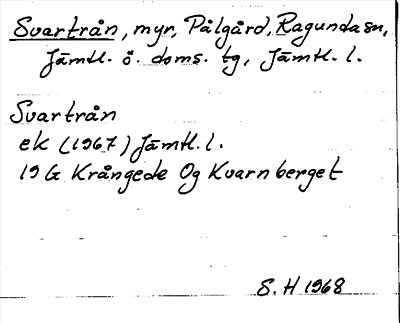 Svartrån, myr, Pålgård, Ragundasn,
Jämtl. ö. doms. tg, Jämtl. l.
Svartrån
ek (1967) Jämtl. l.
19 G Krångede Og Kvarnberget
S. H 1968